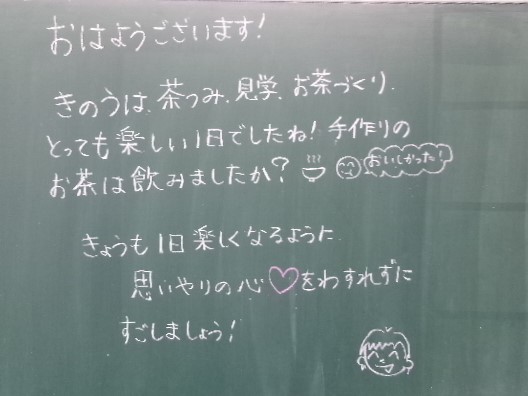 おはようございます!
きのうは、茶つみ、見学、お茶づくり、
とっても楽しい1日でしたね!手作りの
お茶は飲みましたか?
おいしかった!
きょうも1日楽しくなるように
思いやりの心♡をわすれずに
すごしましょう!